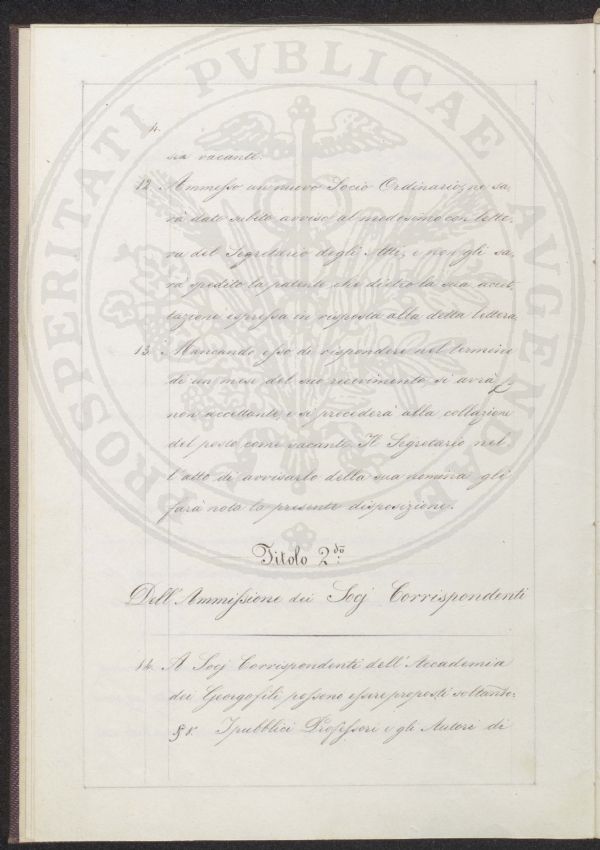 PROSPERITATI PVBLICAE AVGENDAE
4.
sia vacante.
12. Ammesso un nuovo Socio Ordinario, ne sa,
rà dato subito avviso al medesimo con lette,
ra del Segretario degli Atti, e non gli sa,
rà spedita la patente che dietro la sua accet
tazione espressa in risposta alla detta lettera.
13. Mancando esso di rispondere nel termine
di un mese del suo ricevimento si avrà
non accettante, e si procederà alla collazione
del posto come vacante. Il Segretario nel
l'atto di avvisarlo della sua nomina gli
farà nota la presente disposizione.
Titolo 2.do
Dell'Ammissione dei Socj Corrispondenti
14. A Socj Corrispondenti dell'Accademia
dei Georgofili possono essere proposti soltanto:
§ 1. I pubblici Professori e gli Autori di